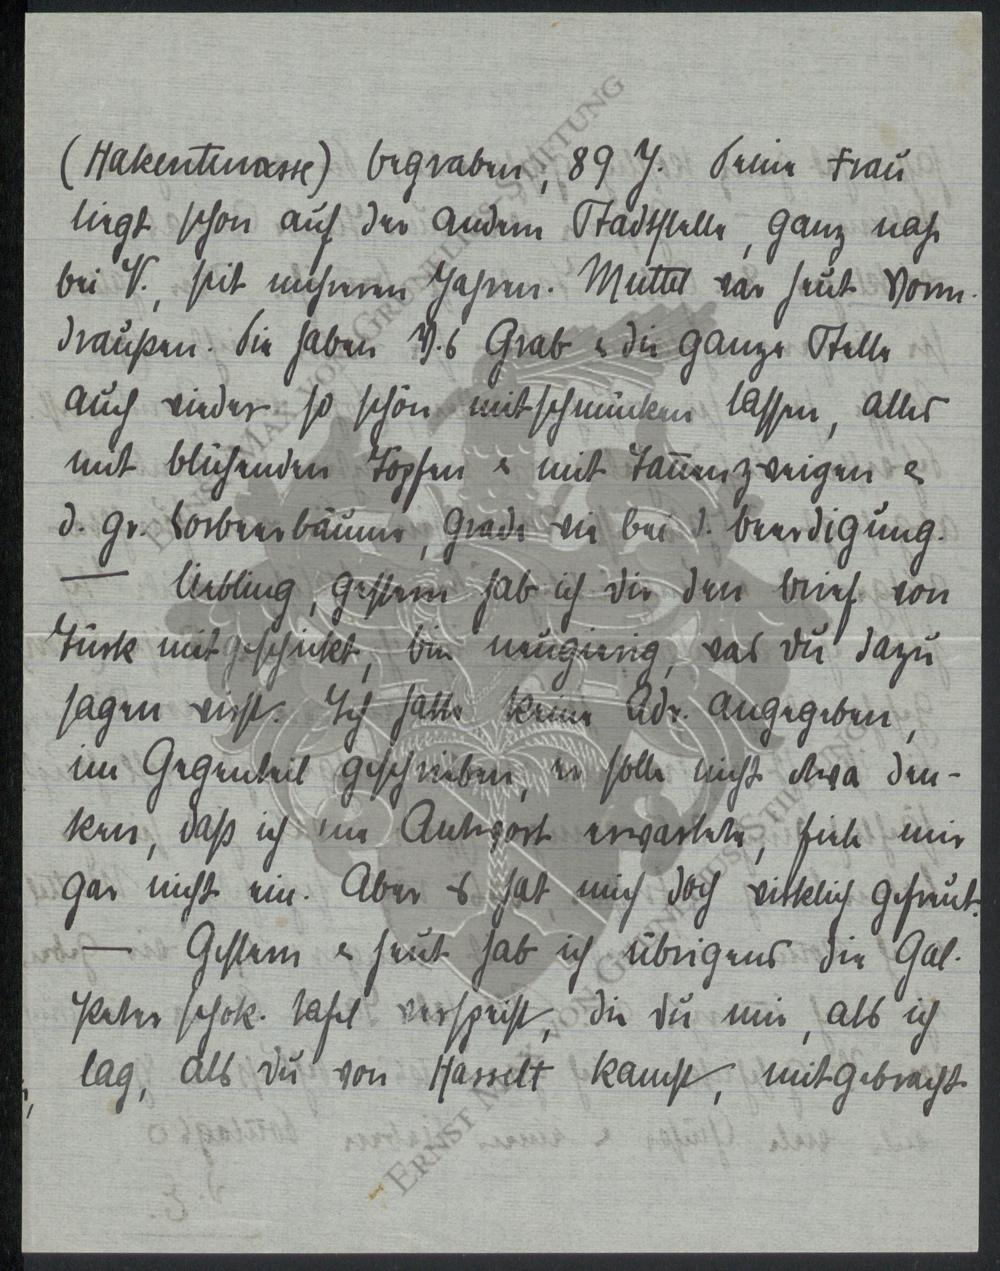 (Hakentrasse) begraben, 89 J. Seine Frau
liegt schon auf der andern Stadtstelle, ganz nah
bei V., seit mehreren Jahren. Muttel war heut Vorm.
draußen. Sie haben V.s Grab & die ganze Stelle
auch wieder so schön mitschmücken lassen, alles
mit blühenden Töpfen & mit Tannenzweigen &
d. gr. Lorbeerbäume, grade wie bei d. Beerdigung.
— Liebling, gestern hab ich Dir den Brief von
Türk mitgeschickt, bin neugierig, was Du dazu
sagen wirst. Ich hatte keine Adr. angegeben,
im Gegenteil geschrieben, er solle nicht etwa den-
ken, daß ich eine Antwort erwartete, fiele mir
gar nicht ein. Aber es hat mich doch wirklich gefreut.
— Gestern & heut hab ich übrigens die Gal.
Peter schok. tafel verspeist, die Du mir, als ich
lag, als Du von Hasselt kamst, mitgebracht
ERNST MAX VON GRUNELIUS STIFTUNG
ERNST MAX VON GRUNELIUS STIFTUNG